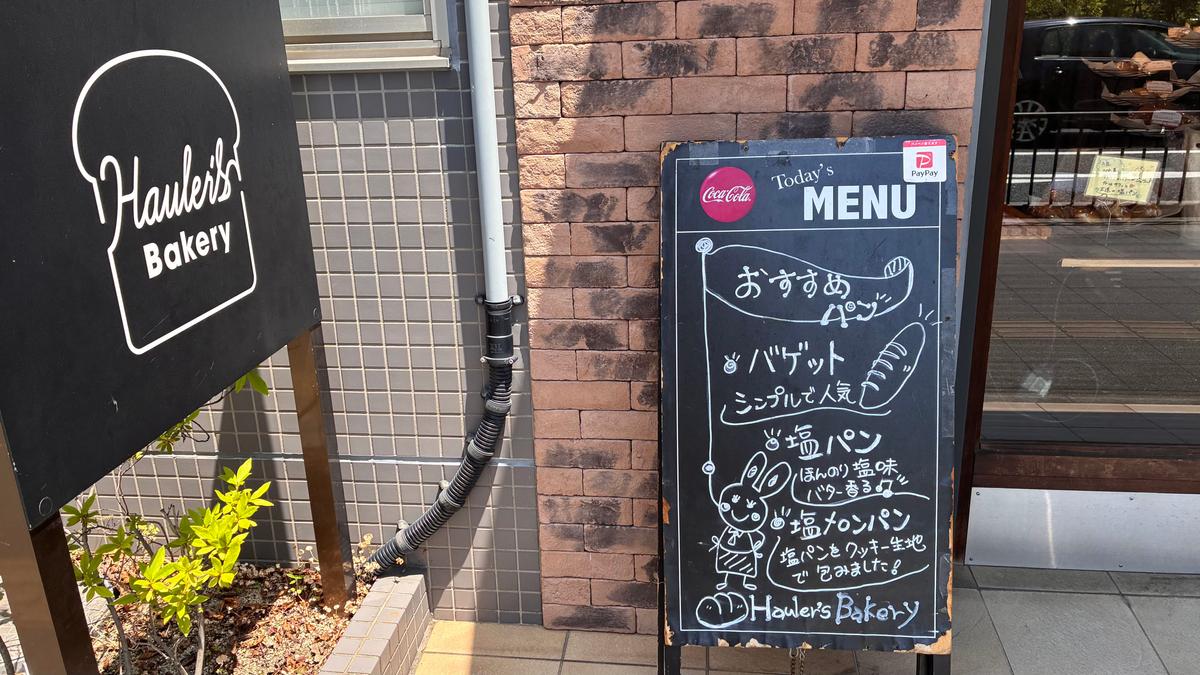 Hauler's
Bakery
Coca-Cola
Today's
MENU
PayPay
おすすめ
パン
バゲット
シンプルで人気
塩パン
ほんのり塩味
バター香る♪
塩メロンパン
塩パンをクッキー生地
で包みました!
Hauler's Bakery